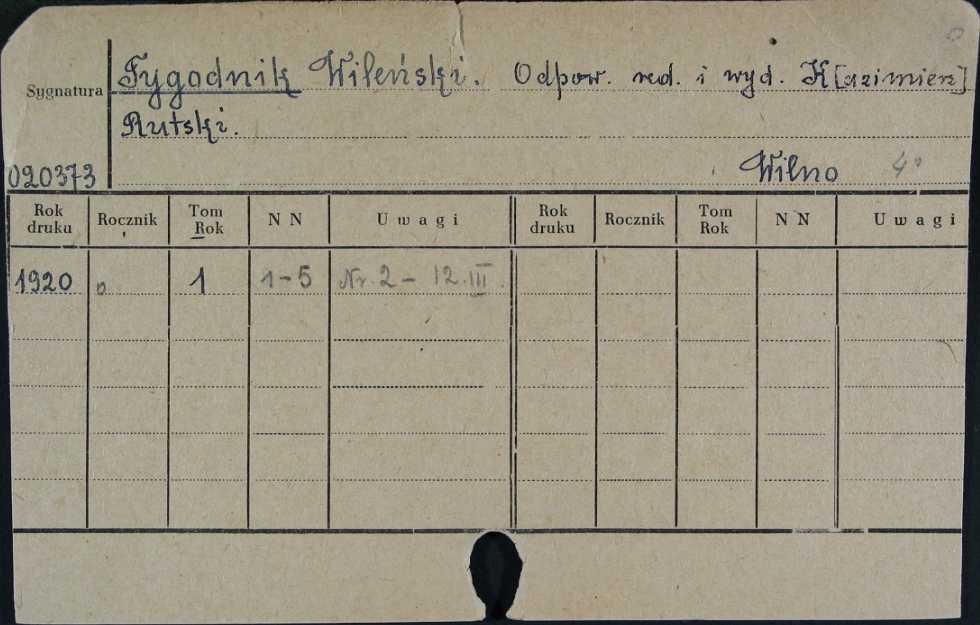 Sygnatura
Tygodnik Wileński. Odpow. red. i wyd. K[azimierz]
Rutski.
020373
Wilno 4°
Rok druku Rocznik Tom Rok N N Uwagi Rok druku Rocznik Tom Rok N N Uwagi
1920 1 1-5 Nr. 2 - 12.III.